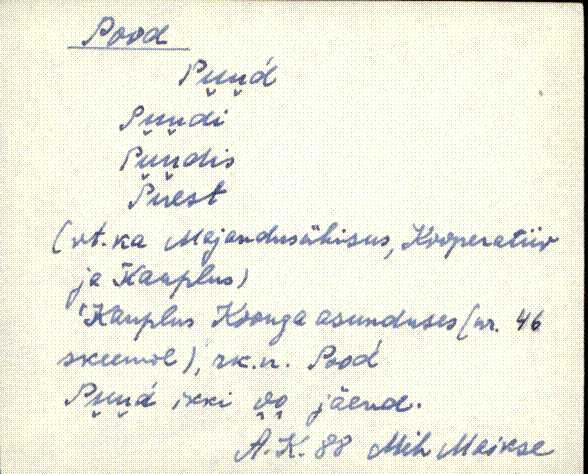 Pood
Pu̬u̬d́
Pu̬u̬di
Pu̬u̬dis
Puest
(vt. ka Majandusühisus, Kooperatiiv
ja Kauplus)
Kauplus Koonga asunduses (nr. 46
skeemil), rk.n. Pood
Pu̬u̬d́ ikki o̭o̭ jäend.
A.K. 88 Mih Maikse